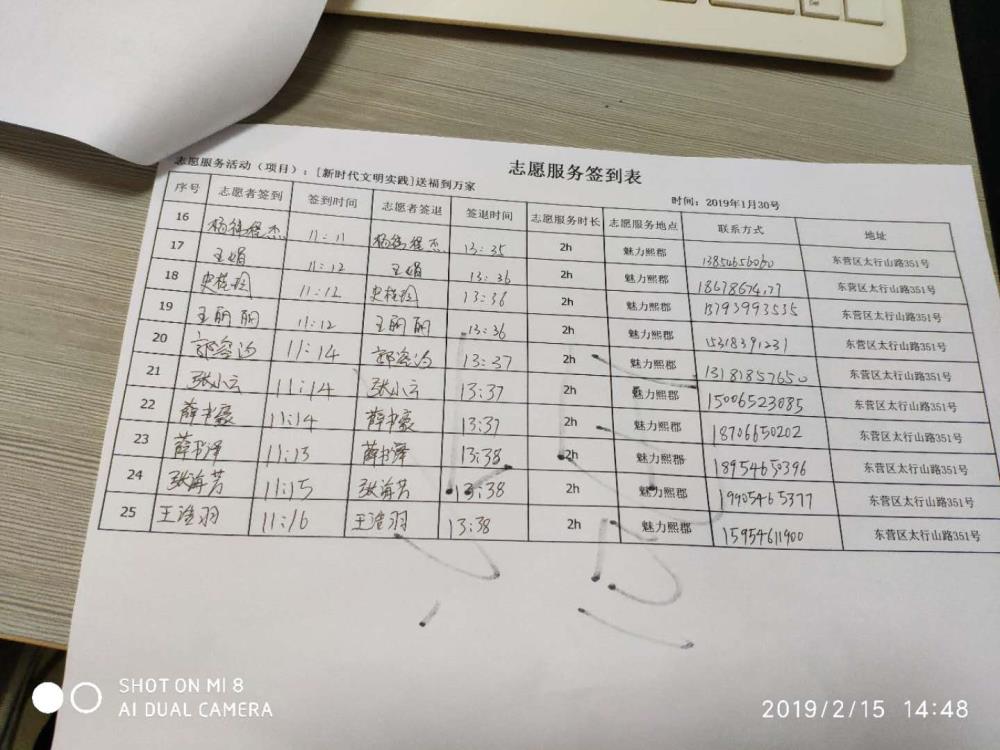 志愿服务签到表
志愿服务活动（项目）：[新时代文明实践]送福到万家
时间：2019年1月30号
序号 志愿者签到 签到时间 志愿者签退 签退时间 志愿服务时长 志愿服务地点 联系方式 地址
16 11:11 13:35 2h 魅力熙郡 东营区太行山路351号
17 王娟 11:12 王娟 13:36 2h 魅力熙郡 东营区太行山路351号
18 11:12 13:36 2h 魅力熙郡 东营区太行山路351号
19 王丽丽 11:12 王丽丽 13:36 2h 魅力熙郡 15318391231 东营区太行山路351号
20 11:14 13:37 2h 魅力熙郡 13181857650 东营区太行山路351号
21 张小云 11:14 张小云 13:37 2h 魅力熙郡 15006523085 东营区太行山路351号
22 薛书豪 11:14 薛书豪 13:37 2h 魅力熙郡 18706650202 东营区太行山路351号
23 薛书泽 11:15 薛书泽 13:38 2h 魅力熙郡 18954650396 东营区太行山路351号
24 张海芳 11:15 张海芳 13:38 2h 魅力熙郡 19905465377 东营区太行山路351号
25 11:16 13:38 2h 魅力熙郡 15954611900 东营区太行山路351号
SHOT ON MI 8
AI DUAL CAMERA
2019/2/15 14:48